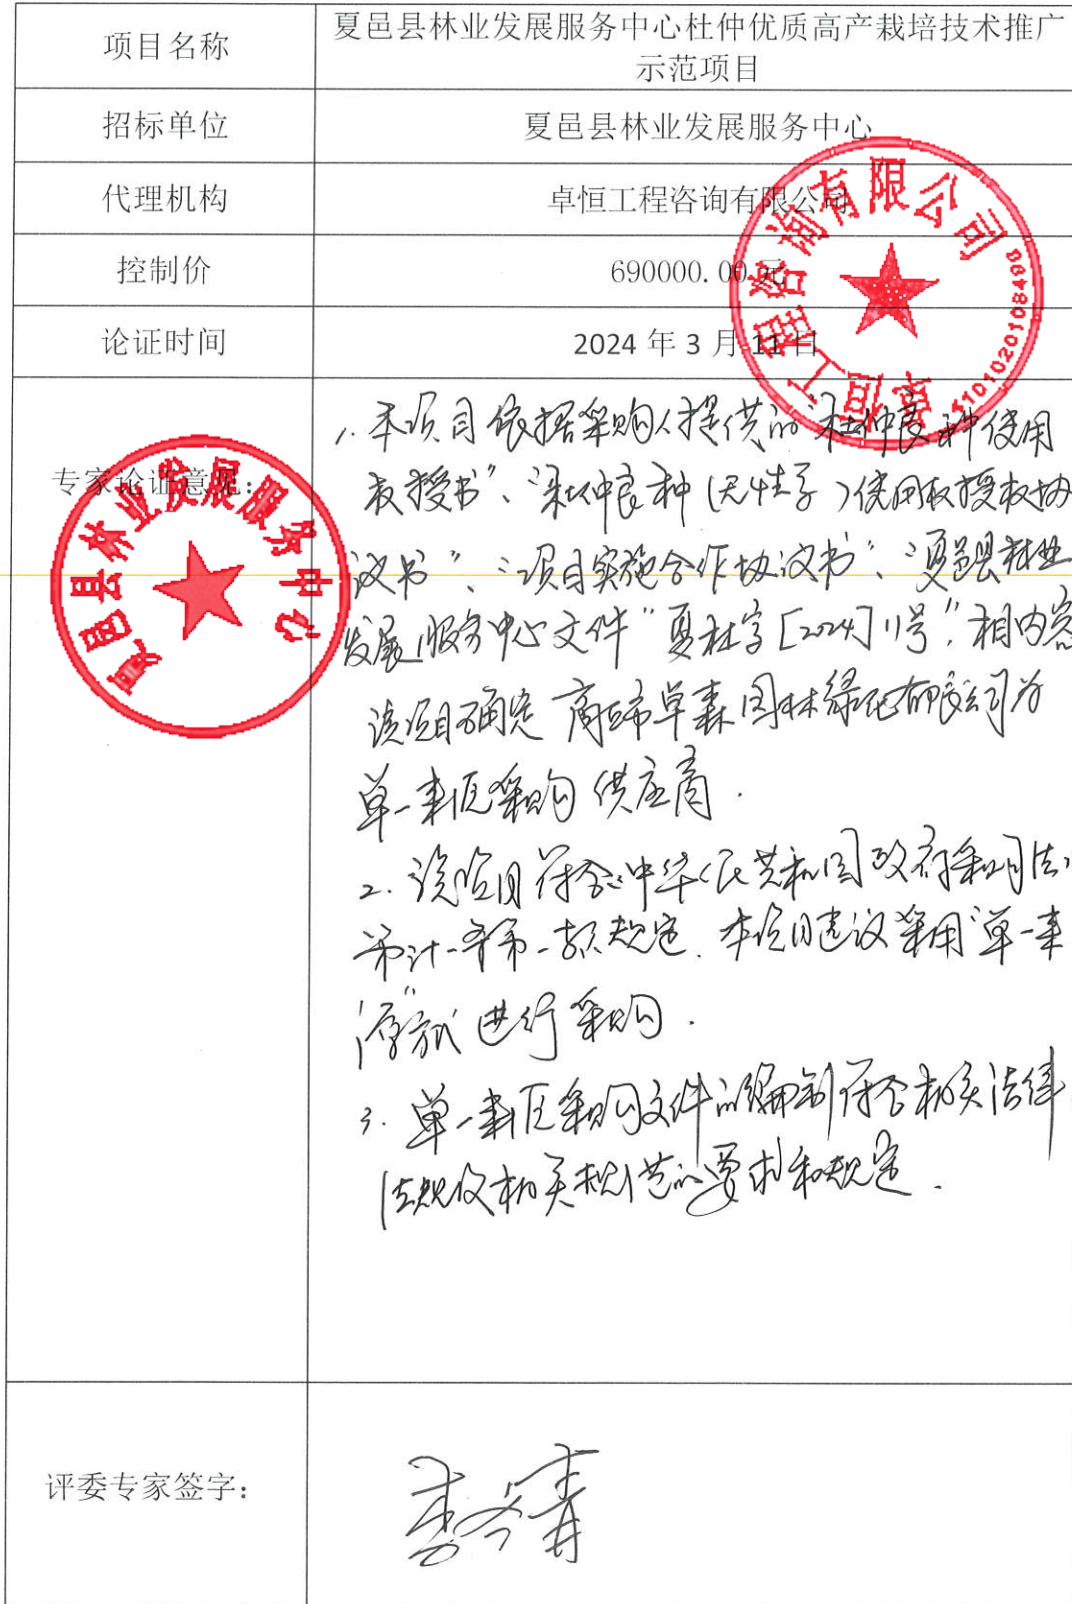 项目名称
夏邑县林业发展服务中心杜仲优质高产栽培技术推广
示范项目
招标单位
夏邑县林业发展服务中心
代理机构
卓恒工程咨询有限公司
控制价
690000.00元
论证时间
2024 年 3 月 11 日
专家论证意见：
1. 本项目依据采购人提供的“杜仲良种使用
权授书”、“杜仲良种（ ）使用权授权协
议书”、“项目实施合作协议书”、“夏邑县林业
发展服务中心文件“夏林字[2024]11号”相内容
该项目确定商丘市卓森园林绿化有限公司为
单一来源采购供应商.
2. 该项目符合《中华人民共和国政府采购法》
第卅一条第一款规定. 本项目建议采用“单一来
源”方式进行采购.
3. 单一来源采购文件的编制符合相关法律
法规及相关规范的要求和规定.
评委专家签字：
夏邑县林业发展服务中心
卓恒工程咨询有限公司